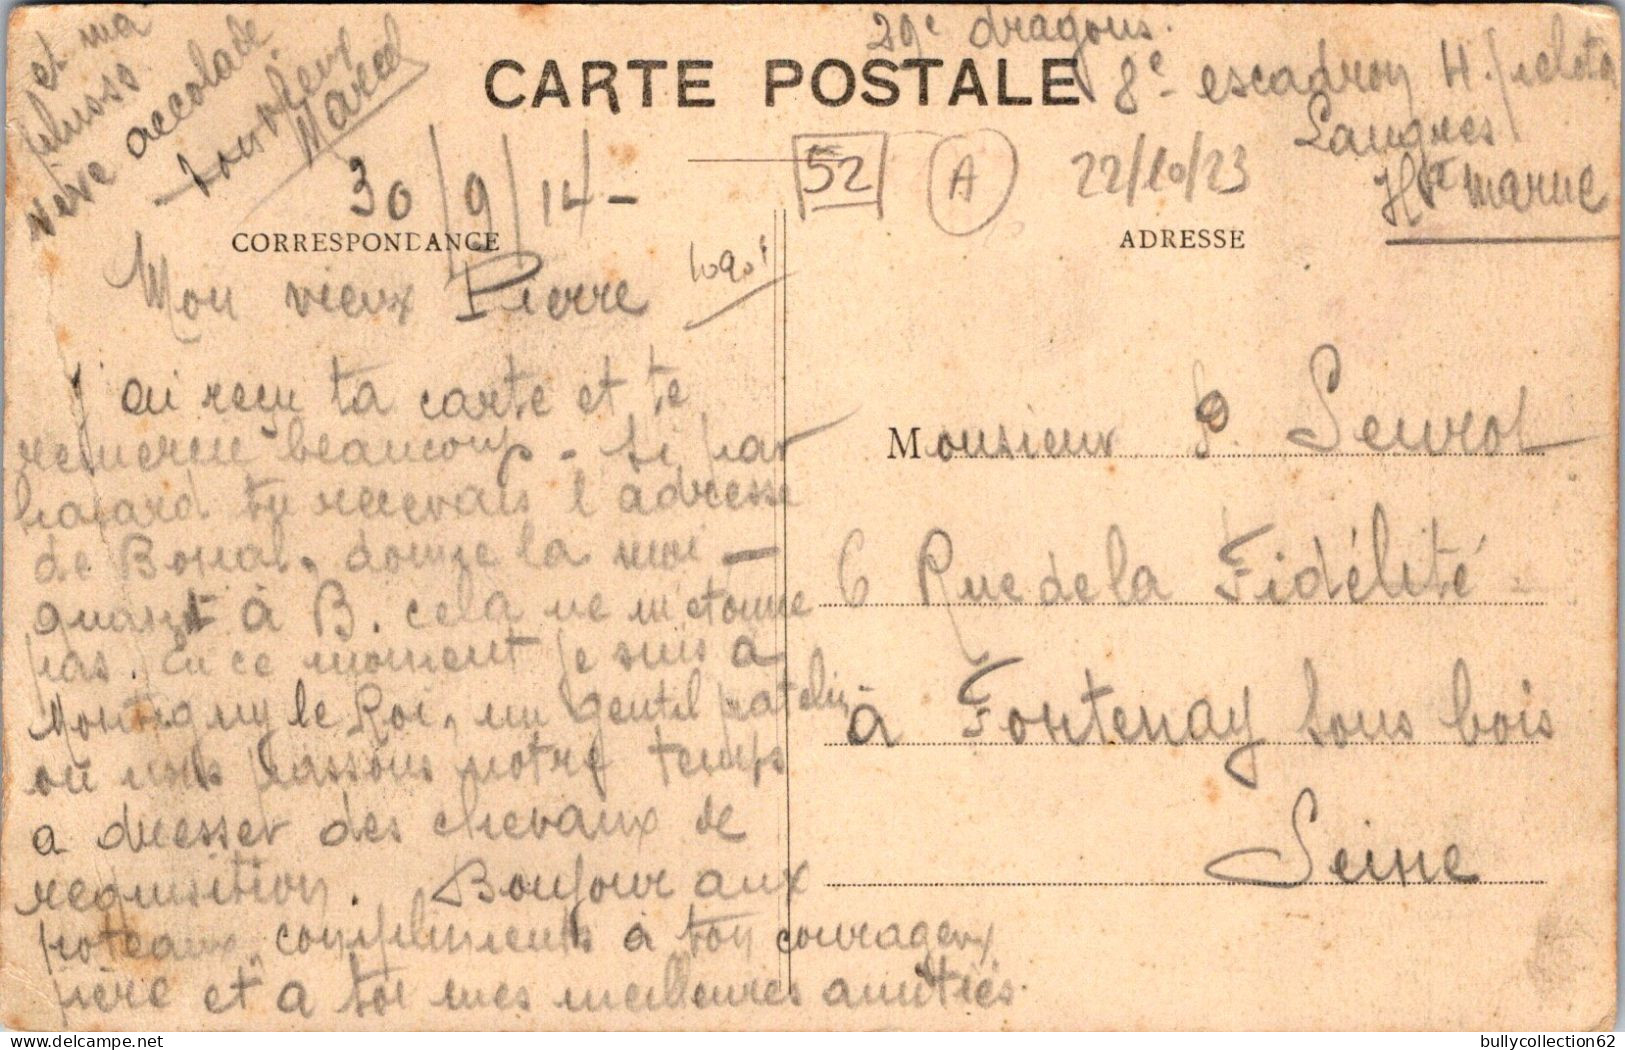 et ma
plus
vive accolade.
Ton vieux
Marcel
29e dragons.
8e escadron 4e
Langres
Hte Marne
CARTE POSTALE
52
A
22/10/23
30/9/14-
CORRESPONDANCE
ADRESSE
Mon vieux Pierre
J'ai reçu ta carte et te
remercie beaucoup. Si par
hasard tu recevais l'adresse
de Bonal, donne la moi —
quant à B. cela ne m'etonne
pas. En ce moment je suis à
Montigny le Roi, un gentil patelin
ou nous passons notre temps
a dresser des chevaux de
requisition. Bonjour aux
poteaux, compliments a ton courageux
père et a toi mes meilleures amitiés.
Monsieur P. Seurot
6 Rue de la Fidélité
à Fontenay sous bois
Seine
bullycollection62